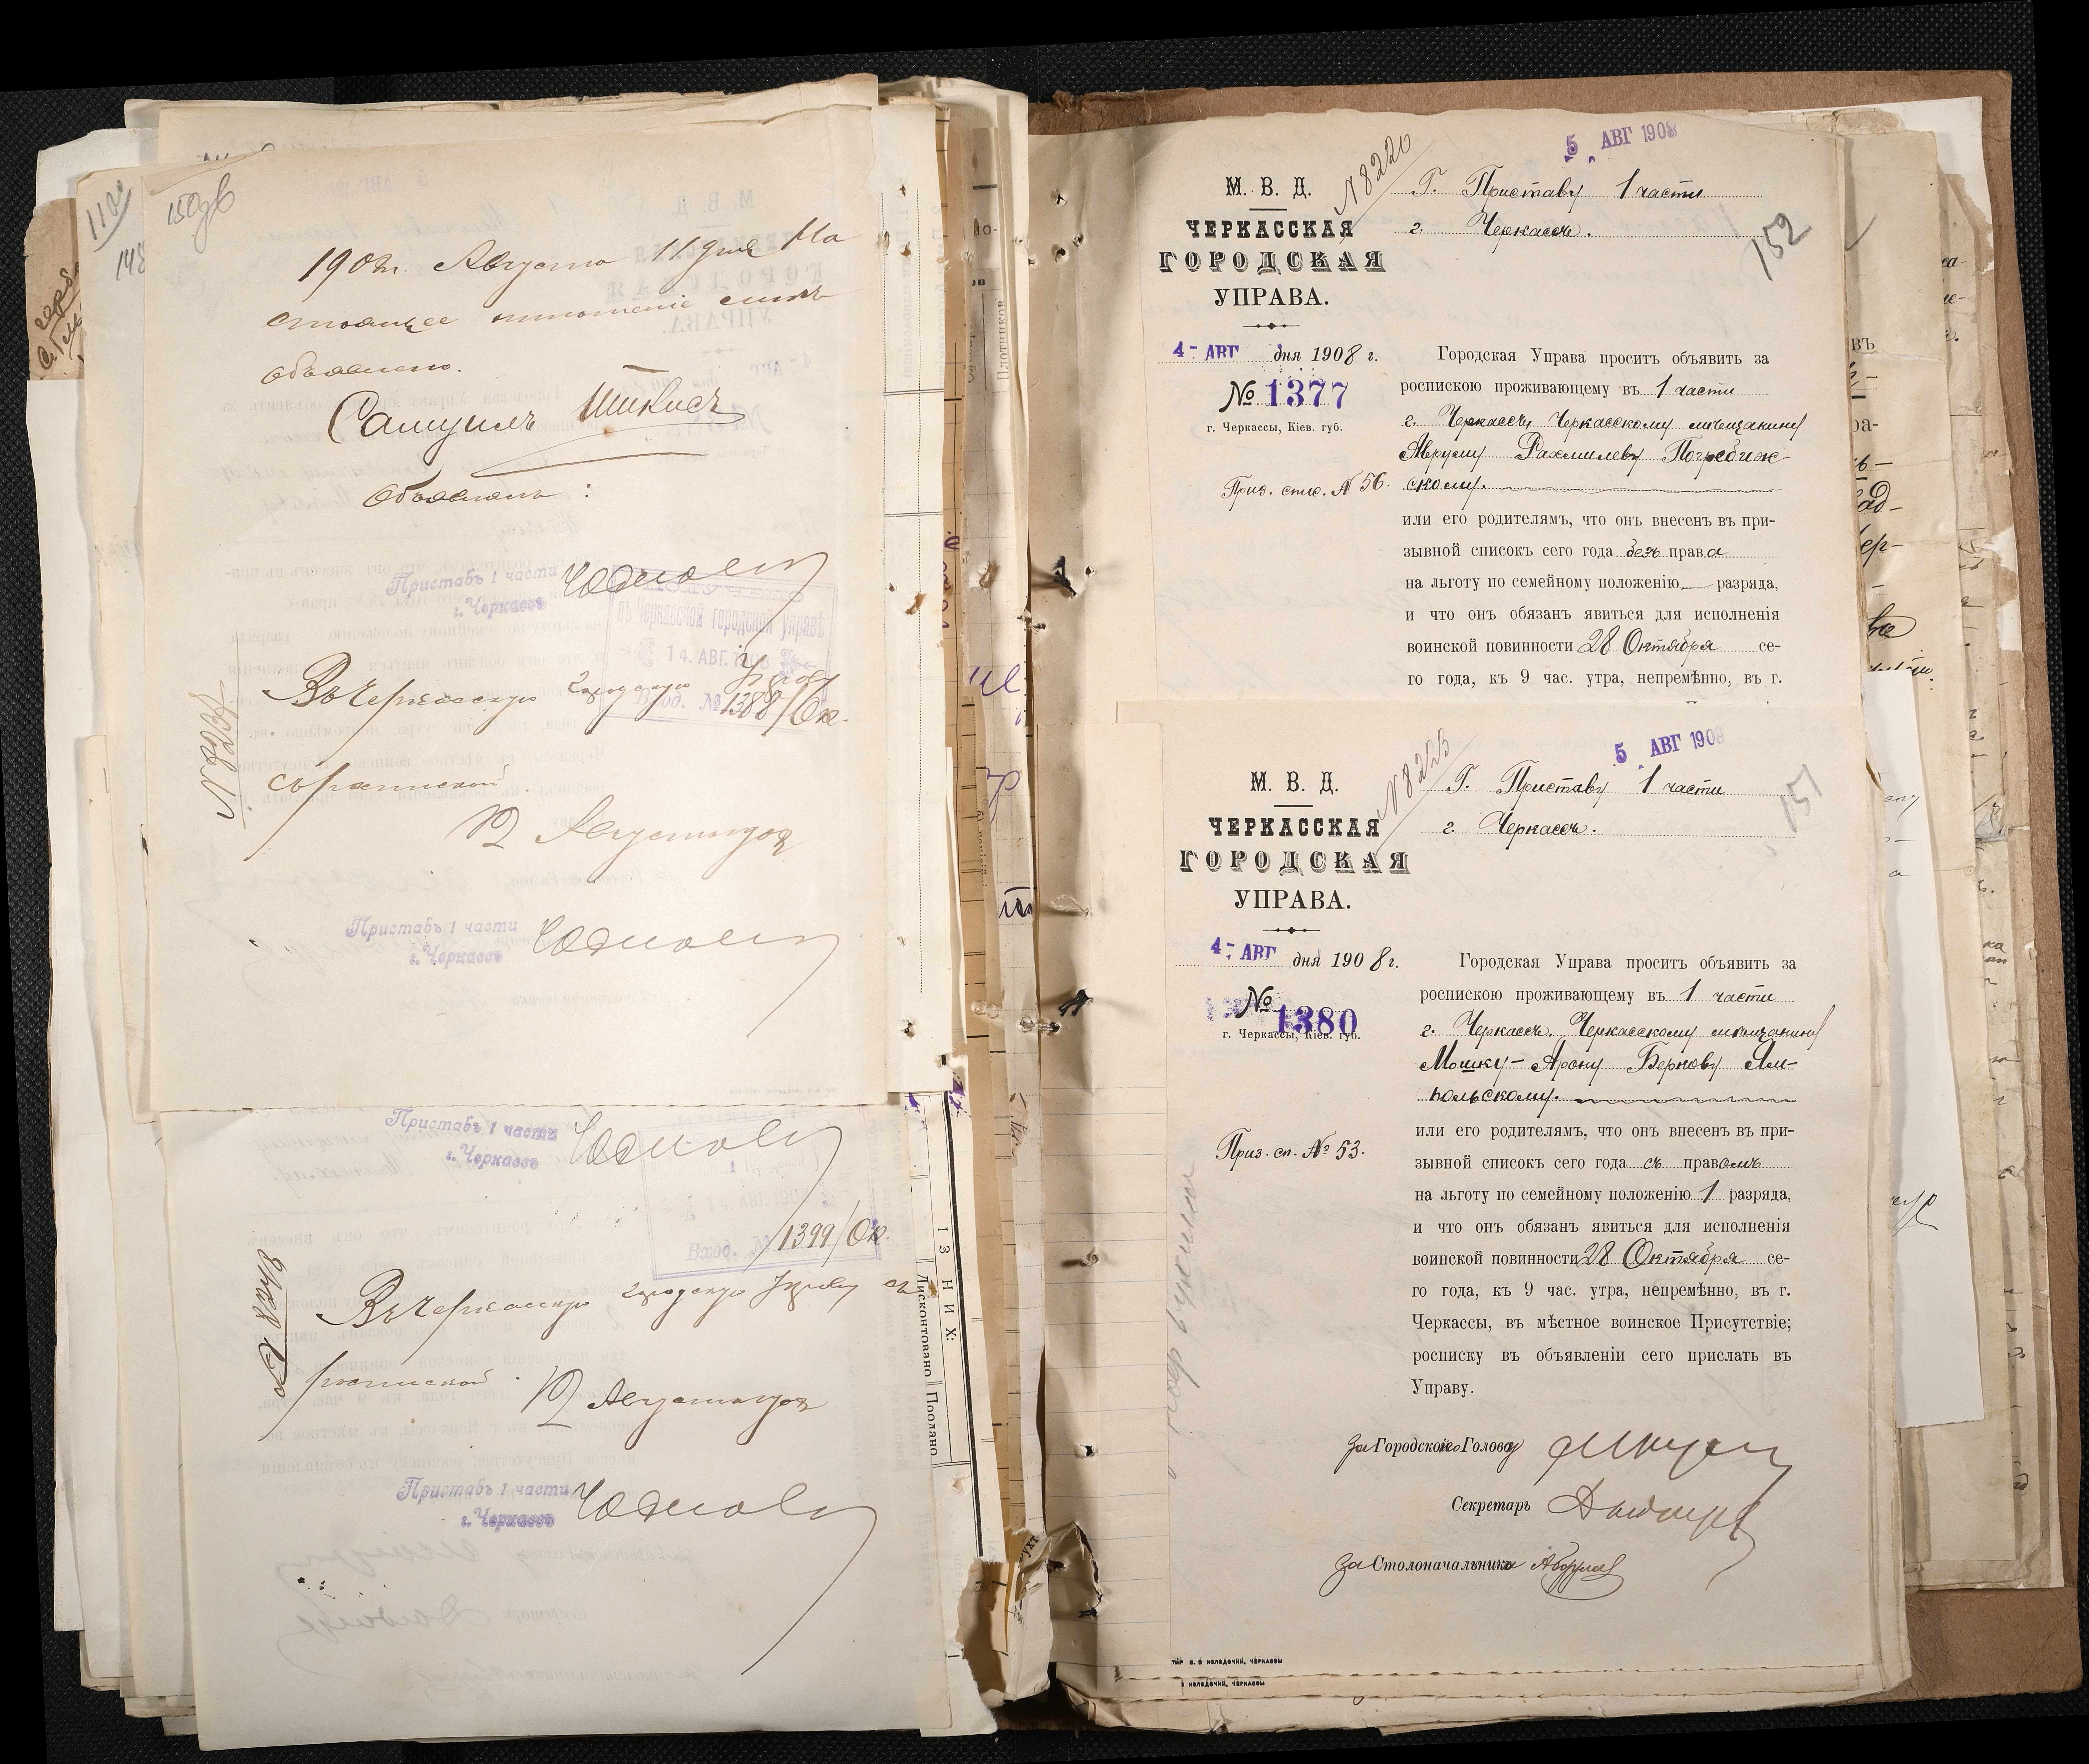 112
148
150об
1908г. Августа 11 дня На
стоящее отношение мнѣ
объявлено.
Самуилъ
Объявилъ:
Приставъ 1 части
г. Черкассъ
въ Черкасской городской управѣ
14. АВГ. 1908
Вход. № 1388/Ок.
Въ Черкасскую городскую Управу
съ роспиской.
12 Августа 1908
Приставъ 1 части
г. Черкассъ
Приставъ 1 части
г. Черкассъ
Вход. № 1399/Ок.
Въ Черкасскую городскую Управу съ
роспиской.
12 Августа 1908
Приставъ 1 части
г. Черкассъ
ІЗ НИХ:
Дисконтовано
Продано
5 АВГ 1908
N 8220
М. В. Д.
ЧЕРКАССКАЯ
ГОРОДСКАЯ
УПРАВА.
Г. Приставу 1 части
г. Черкассъ.
152
4- АВГ дня 1908 г.
№ 1377
г. Черкассы, Кіев. губ.
Приз. спис. № 56.
Городская Управа проситъ объявить за
роспискою проживающему въ 1 части
г. Черкассъ, Черкасскому мѣщанину
Аврумy Рахмилеву Погребиж-
скому.
или его родителямъ, что онъ внесенъ въ при-
зывной списокъ сего года безъ права
на льготу по семейному положенію — разряда,
и что онъ обязанъ явиться для исполненія
воинской повинности 28 Октября се-
го года, къ 9 час. утра, непремѣнно, въ г.
5 АВГ 1908
N 8255
М. В. Д.
ЧЕРКАССКАЯ
ГОРОДСКАЯ
УПРАВА.
Г. Приставу 1 части
г. Черкассъ.
151
4- АВГ дня 1908 г.
№ 1380
г. Черкассы, Кіев. губ.
Приз. сп. № 53.
Городская Управа проситъ объявить за
роспискою проживающему въ 1 части
г. Черкассъ, Черкасскому мѣщанину
Мошку-Арону Бернову Ям-
польскому.
или его родителямъ, что онъ внесенъ въ при-
зывной списокъ сего года съ правомъ
на льготу по семейному положенію 1 разряда,
и что онъ обязанъ явиться для исполненія
воинской повинности 28 Октября се-
го года, къ 9 час. утра, непремѣнно, въ г.
Черкассы, въ мѣстное воинское Присутствіе;
росписку въ объявленіи сего прислать въ
Управу.
За Городского Голову
Секретарь
За Столоначальника
тип. в. в. колодочки, черкассы
в. колодочки, черкассы